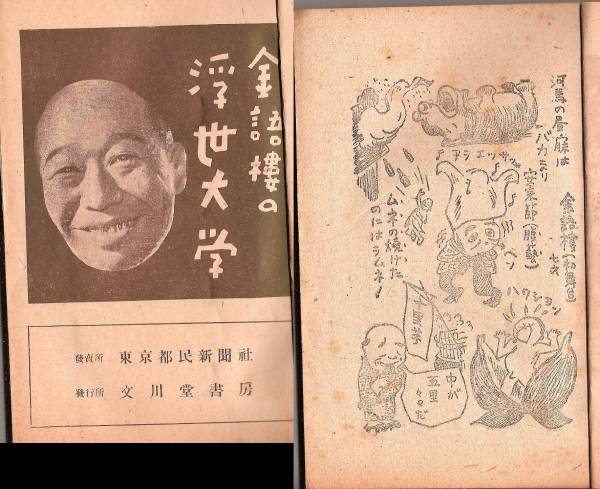 金語樓の
浮世大学
發賣所 東京都民新聞社
發行所 文川堂書房
河馬の昼寐は
バカニナリ
金語樓(初舞台)
七才
安来節(豚藝)
アラエッサッサ
ヘン
ムネの焼けた
のにはラムネ!
ハクション
中が
五里
々々だ